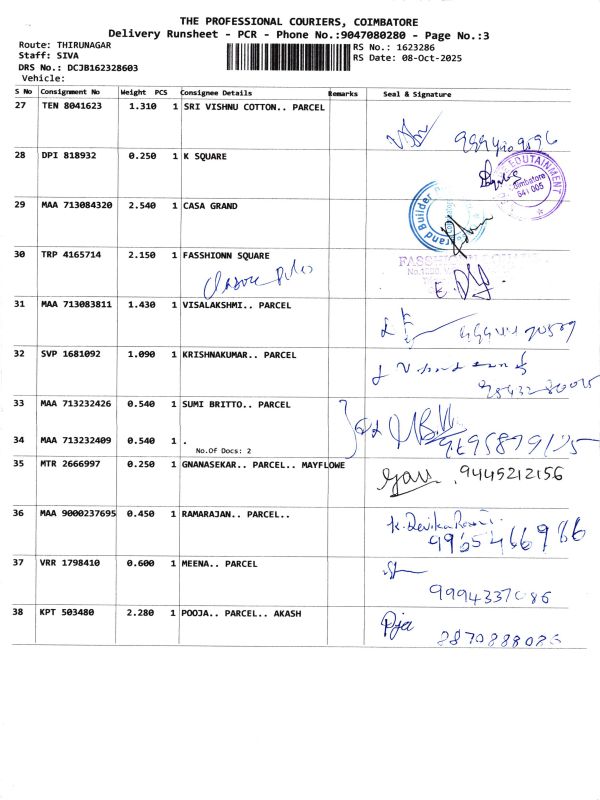 THE PROFESSIONAL COURIERS, COIMBATORE
Delivery Runsheet - PCR - Phone No.:9047080280 - Page No.:3
Route: THIRUNAGAR RS No.: 1623286
Staff: SIVA RS Date: 08-Oct-2025
DRS No.: DCJB162328603
Vehicle:
S No Consignment No Weight PCS Consignee Details Remarks Seal & Signature
27 TEN 8041623 1.310 1 SRI VISHNU COTTON.. PARCEL
28 DPI 818932 0.250 1 K SQUARE
EDUTAINMENT
Coimbatore
641 005
29 MAA 713084320 2.540 1 CASA GRAND
Grand Builder
30 TRP 4165714 2.150 1 FASSHIONN SQUARE
31 MAA 713083811 1.430 1 VISALAKSHMI.. PARCEL
32 SVP 1681092 1.090 1 KRISHNAKUMAR.. PARCEL
33 MAA 713232426 0.540 1 SUMI BRITTO.. PARCEL
34 MAA 713232409 0.540 1 .
No.Of Docs: 2
35 MTR 2666997 0.250 1 GNANASEKAR.. PARCEL.. MAYFLOWE
9445212156
36 MAA 9000237695 0.450 1 RAMARAJAN.. PARCEL..
37 VRR 1798410 0.600 1 MEENA.. PARCEL
9994337086
38 KPT 503480 2.280 1 POOJA.. PARCEL.. AKASH
8870888086